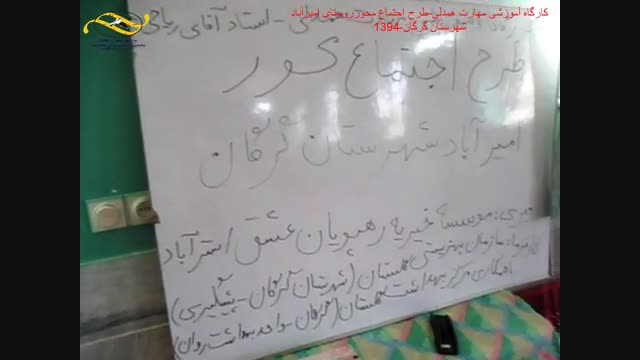 کارگاه آموزشی مهارت همدلی-طرح اجتماع محور-روستای امیرآباد
شهرستان گرگان-1394
استاد آقای ریاحی
طرح اجتماع محور
امیرآباد شهرستان گرگان
مجری: موسسه خیریه رهپویان عشق استرآباد
سازمان بهزیستی گلستان (شهرستان گرگان-پیشگیری)
باهمکاری مرکز بهداشت گلستان (گرگان-واحد بهداشت روان)